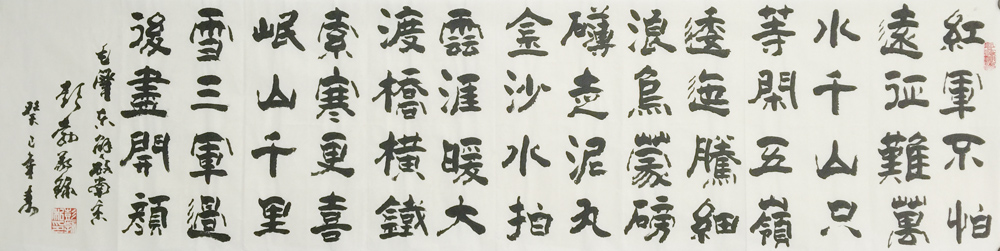 紅軍不怕
遠征難萬
水千山只
等閑五嶺
逶迤騰細
浪烏蒙磅
礴走泥丸
金沙水拍
雲涯暖大
渡橋橫鐵
索寒更喜
岷山千里
雪三軍過
後盡開顏
毛澤東
癸巳年春